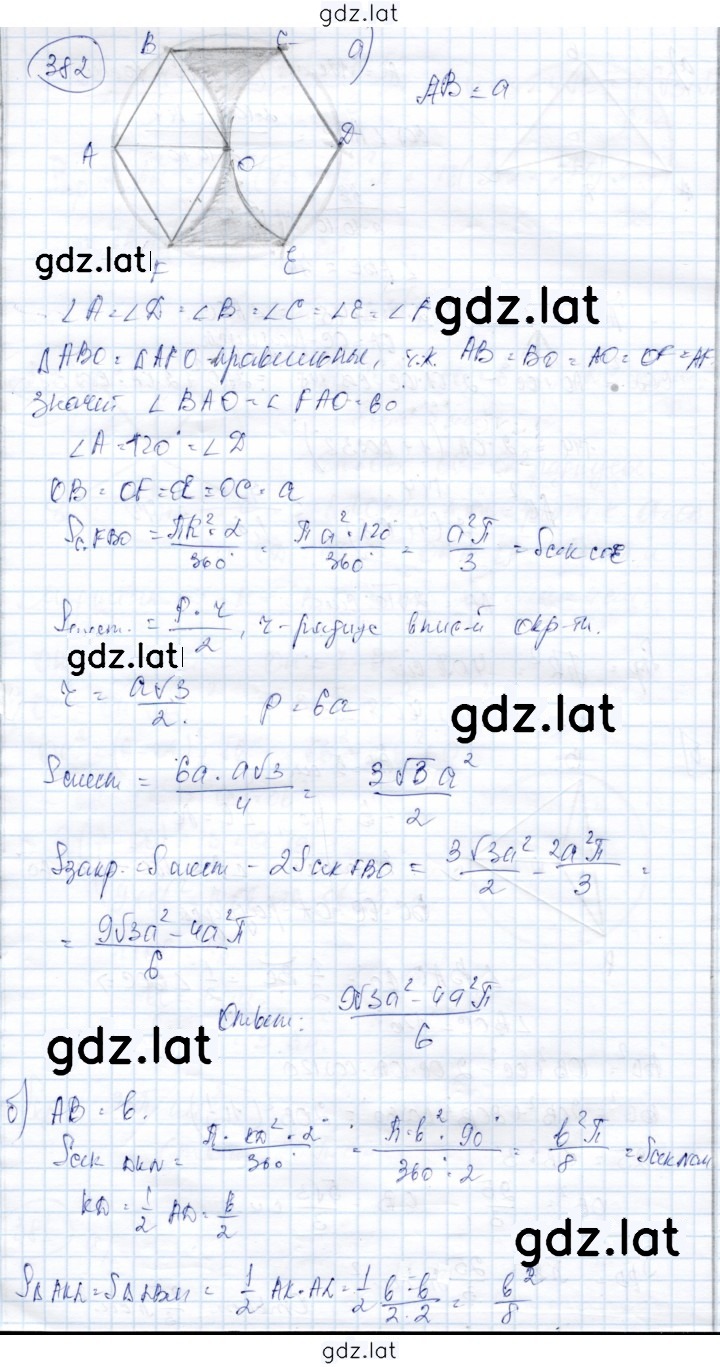 gdz.lat
382
a)
B C
AB = a
A O D
F E
gdz.lat
∠A = ∠D = ∠B = ∠C = ∠E = ∠F
gdz.lat
ΔABO = ΔAFO правильные, т.к. AB = BO = AO = OF = AF
значит ∠BAO = ∠FAO = 60
∠A = 120° = ∠D
OB = OF = OE = OC = a
= πR²·α/360° = πa²·120/360° = a²π/3 =
= P·r/2, r - радиус впис-й окр-ти.
gdz.lat
r = a√3/2. P = 6a
gdz.lat
= 6a·a√3/4 = 3√3a²/2
Sзакр. = - 2Sсек FBO = 3√3a²/2 - 2a²π/3 =
= 9√3a² - 4a²π/6
Ответ: 9√3a² - 4a²π/6
gdz.lat
б) AB = b.
= π·KD²·2°/360° = π·b²·90°/360°·2 = b²π/8 =
KD = 1/2 AD = b/2
gdz.lat
= 1/2 = 1/2 b·b/2·2 = b²/8
gdz.lat